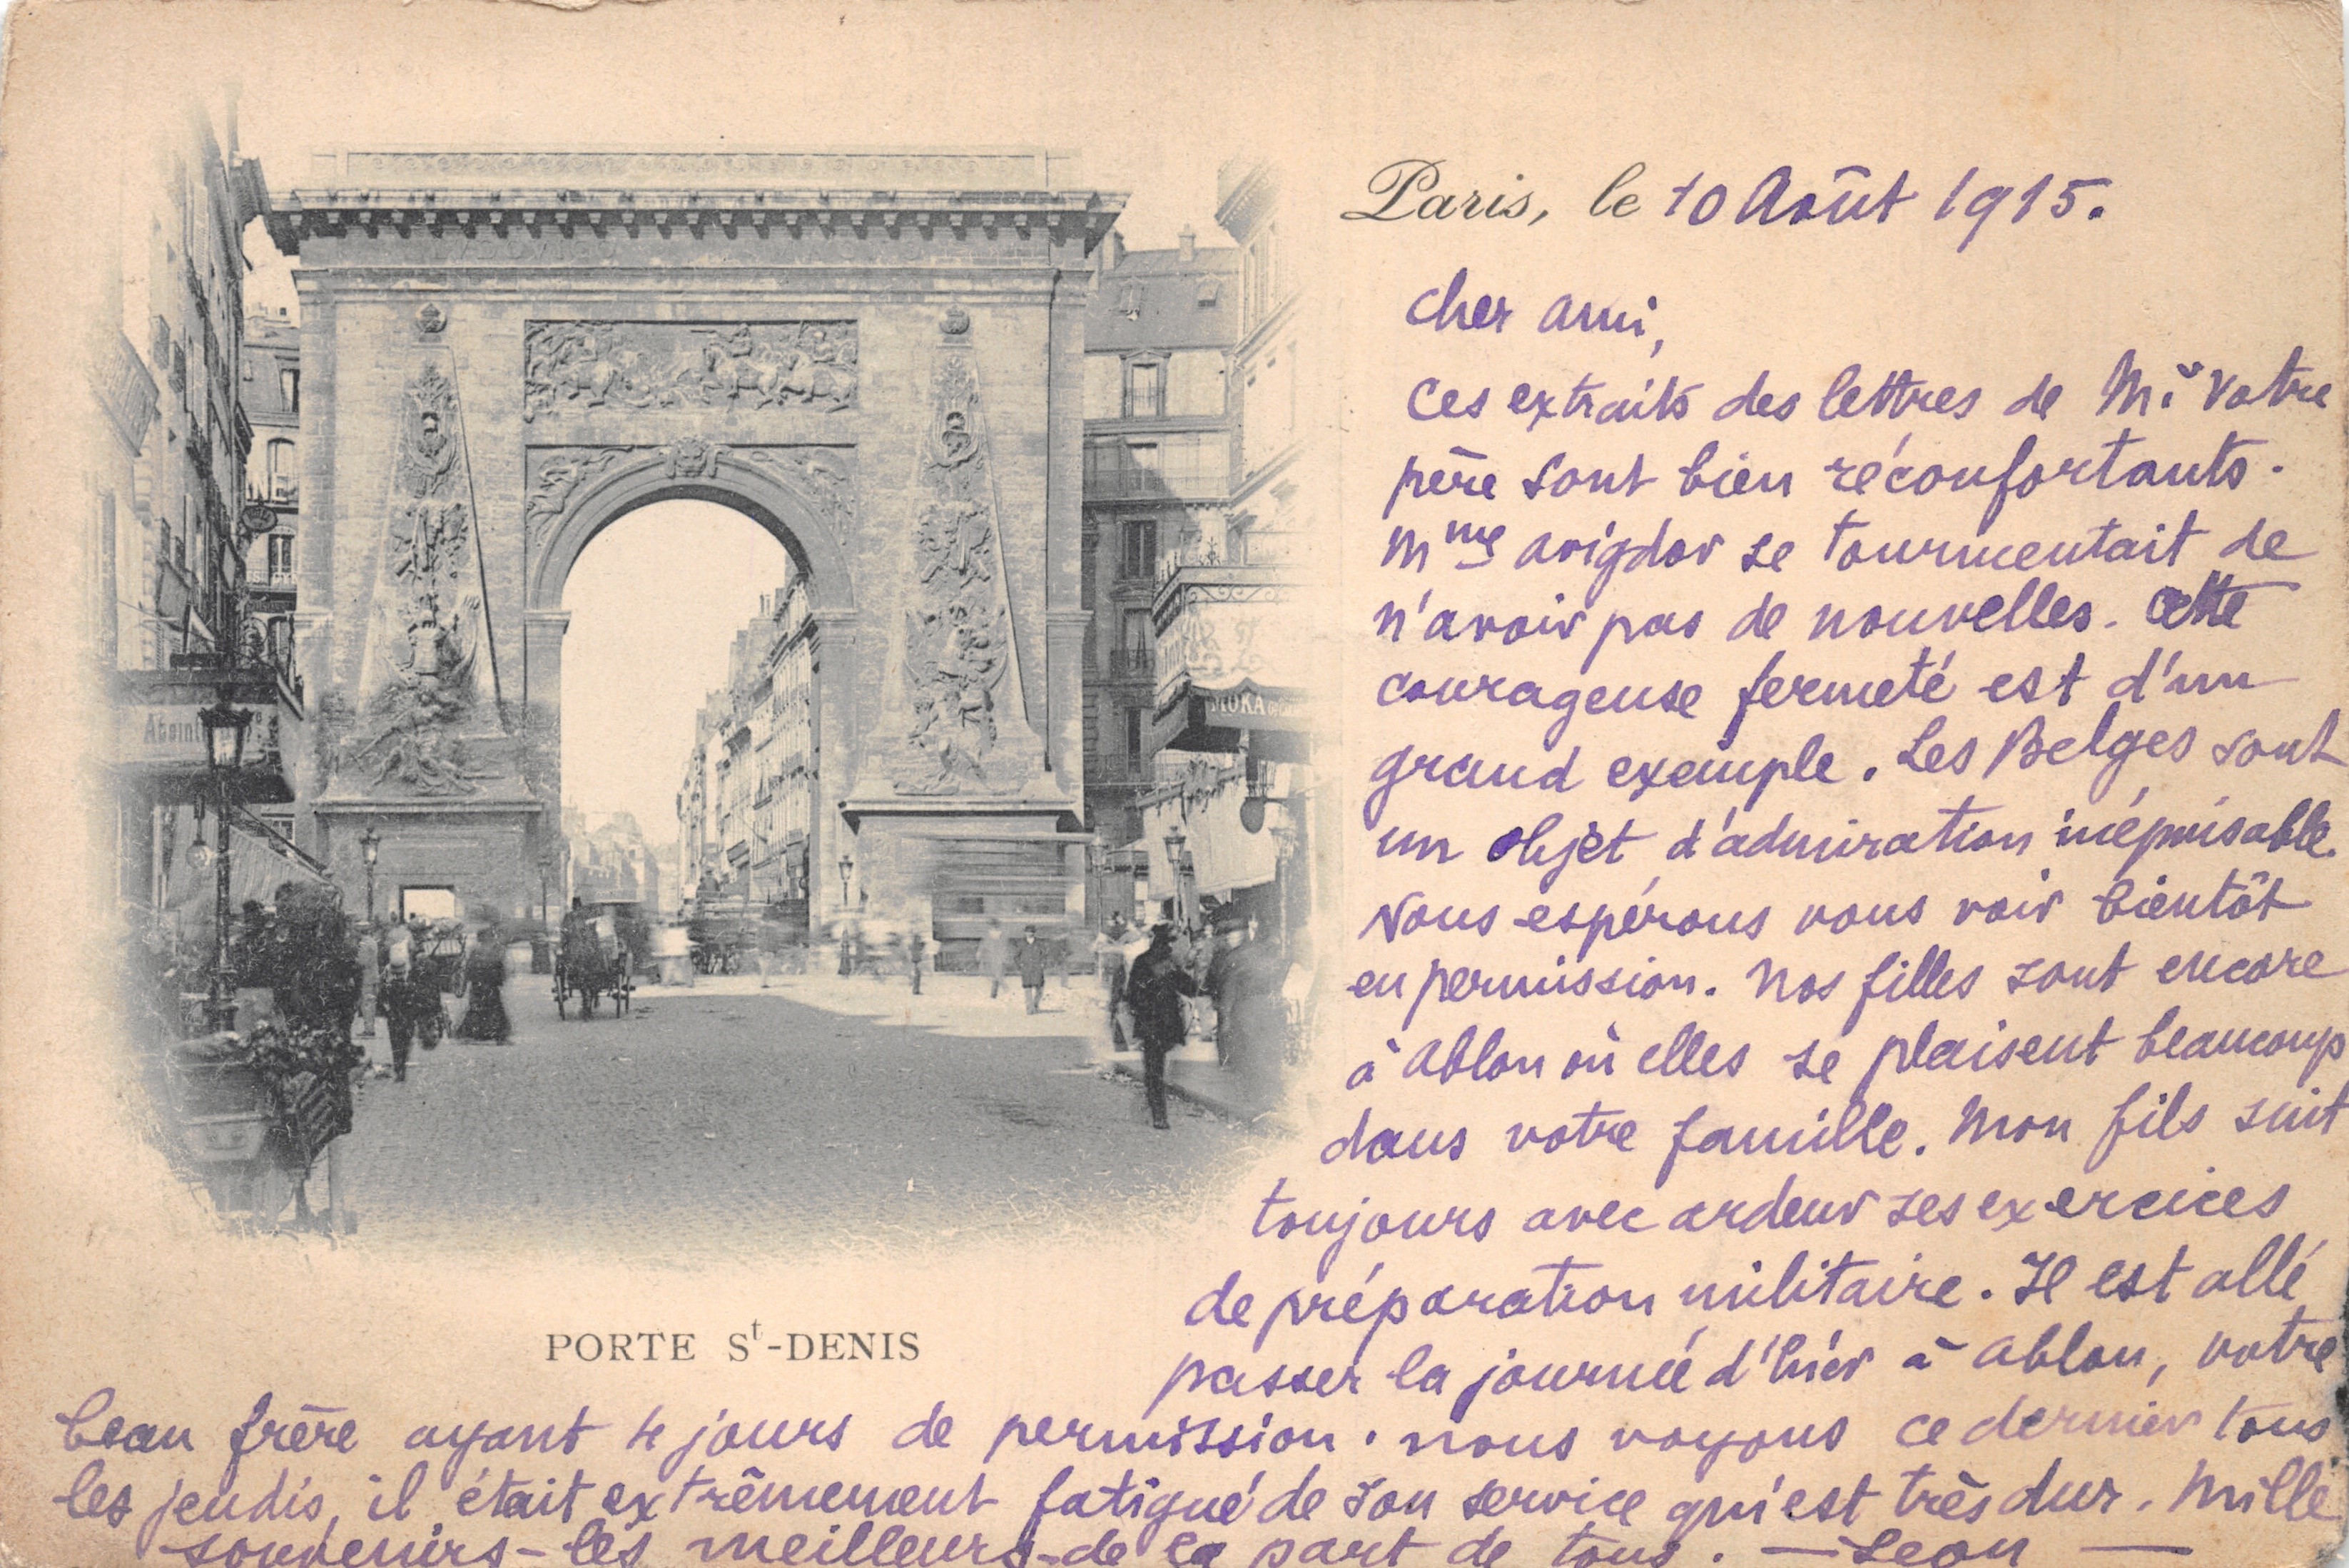 Paris, le 10 Août 1915.
Cher ami,
Ces extraits des lettres de Mr votre
père sont bien réconfortants.
Mme Avigdor se tourmentait de
n'avoir pas de nouvelles. Cette
courageuse fermeté est d'un
grand exemple. Les Belges sont
un objet d'admiration inépuisable.
Nous espérons vous voir bientôt
en permission. Nos filles sont encore
à Ablon où elles se plaisent beaucoup
dans votre famille. Mon fils suit
toujours avec ardeur ses exercices
de préparation militaire. Il est allé
passer la journée d'hier à Ablon, votre
beau frère ayant 4 jours de permission. Nous voyons ce dernier tous
les jeudis, il était extrêmement fatigué de son service qui est très dur. Mille
souvenirs - les meilleurs - de la part de tous. — Léon —
PORTE St-DENIS
MOKA